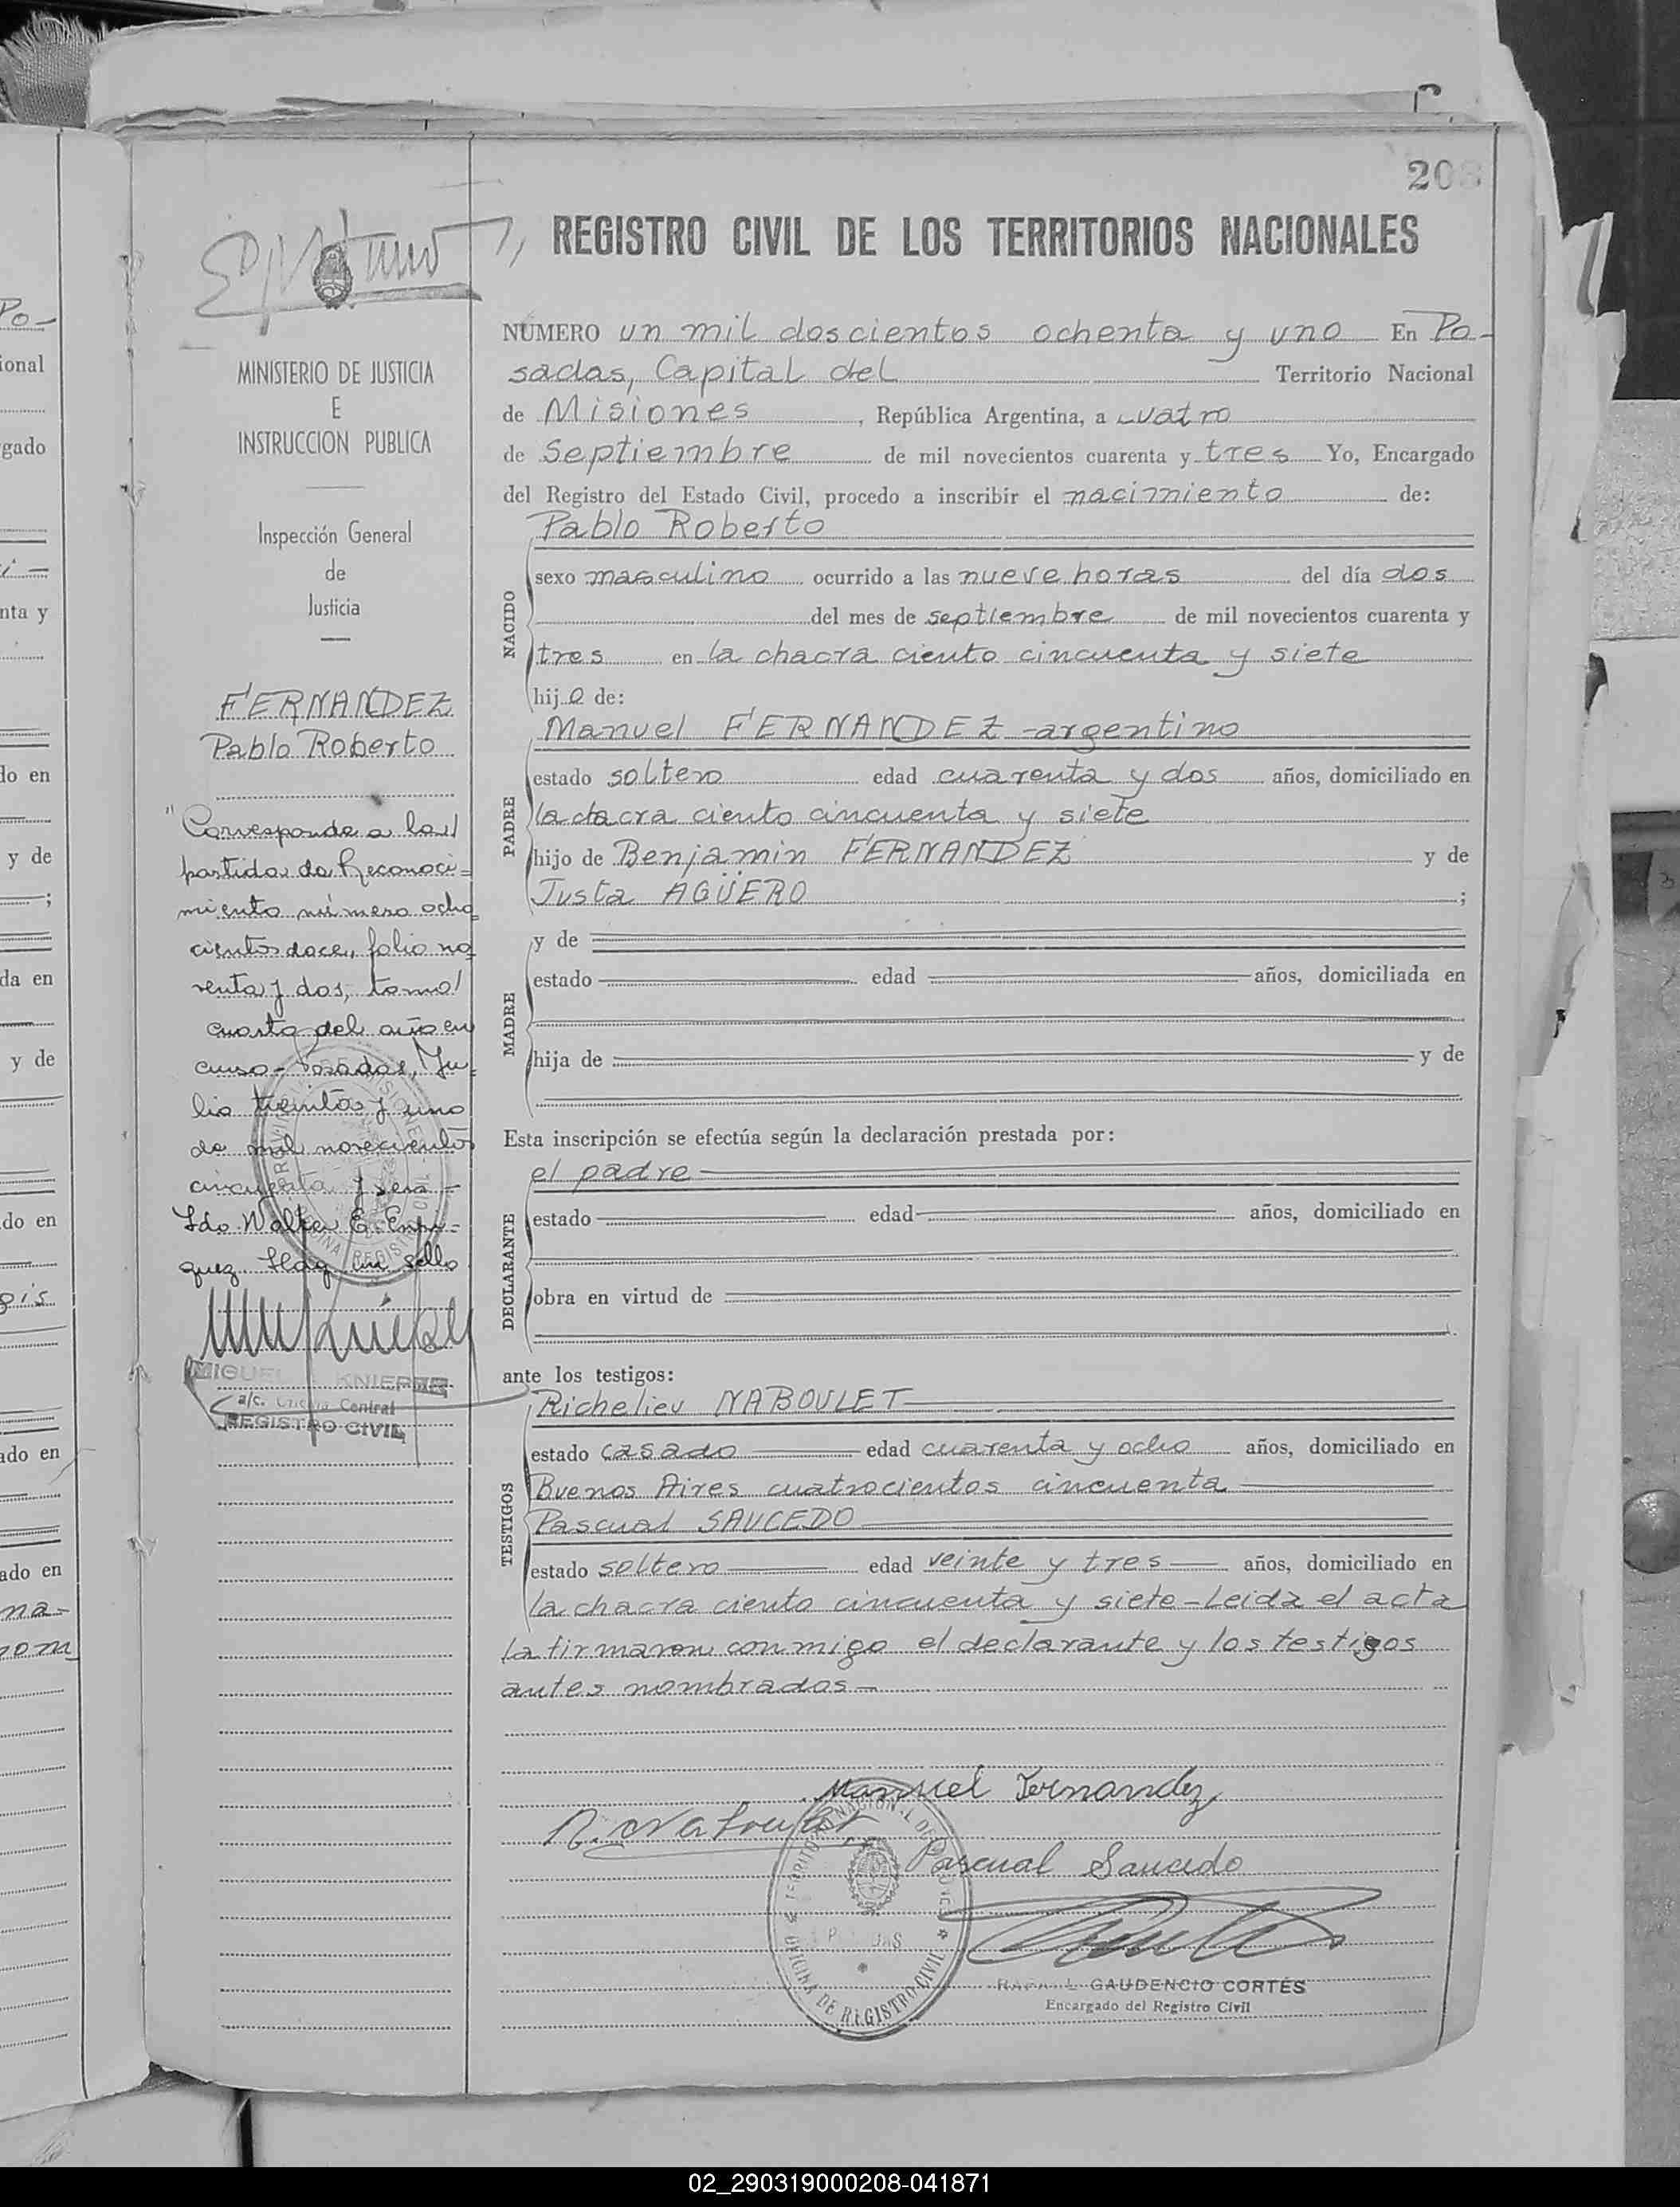 208
REGISTRO CIVIL DE LOS TERRITORIOS NACIONALES
NUMERO un mil doscientos ochenta y uno En Po-
sadas, Capital del Territorio Nacional
de Misiones, República Argentina, a cuatro
de Septiembre de mil novecientos cuarenta y tres Yo, Encargado
del Registro del Estado Civil, procedo a inscribir el nacimiento de:
NACIDO
Pablo Roberto
sexo masculino ocurrido a las nueve horas del día dos
del mes de septiembre de mil novecientos cuarenta y
tres en la chacra ciento cincuenta y siete
hijo de:
PADRE
Manuel FERNANDEZ - argentino
estado soltero edad cuarenta y dos años, domiciliado en
la chacra ciento cincuenta y siete
hijo de Benjamin FERNANDEZ y de
Justa AGÜERO ;
MADRE
y de
estado edad años, domiciliada en
hija de y de
Esta inscripción se efectúa según la declaración prestada por:
DECLARANTE
el padre
estado edad años, domiciliado en
obra en virtud de
ante los testigos:
TESTIGOS
Richelieu NABOULET
estado casado edad cuarenta y ocho años, domiciliado en
Buenos Aires cuatrocientos cincuenta
Pascual SAUCEDO
estado soltero edad veinte y tres años, domiciliado en
la chacra ciento cincuenta y siete - Leida el acta
la firmaron conmigo el declarante y los testigos
antes nombrados -
Manuel Fernandez
Pascual Saucedo
OFICINA DE REGISTRO CIVIL
GAUDENCIO CORTÉS
Encargado del Registro Civil
MINISTERIO DE JUSTICIA
E
INSTRUCCION PUBLICA
Inspección General
de
Justicia
FERNANDEZ
Pablo Roberto
"Corresponde a la
partida de Reconoci=
miento número ocho
cientos doce, folio no
venta y dos, tomo
cuarto del año en
curso - Posadas, Ju
lio treinta y uno
de mil novecientos
cincuenta y seis -
Fdo Walter E. Enri=
quez Hay un sello
MIGUEL KNIEPSE
a/c. Oficina Central
REGISTRO CIVIL
Po-
ional
gado
nta y
do en
y de
;
da en
y de
do en
ado en
ado en
na-
02_290319000208-041871